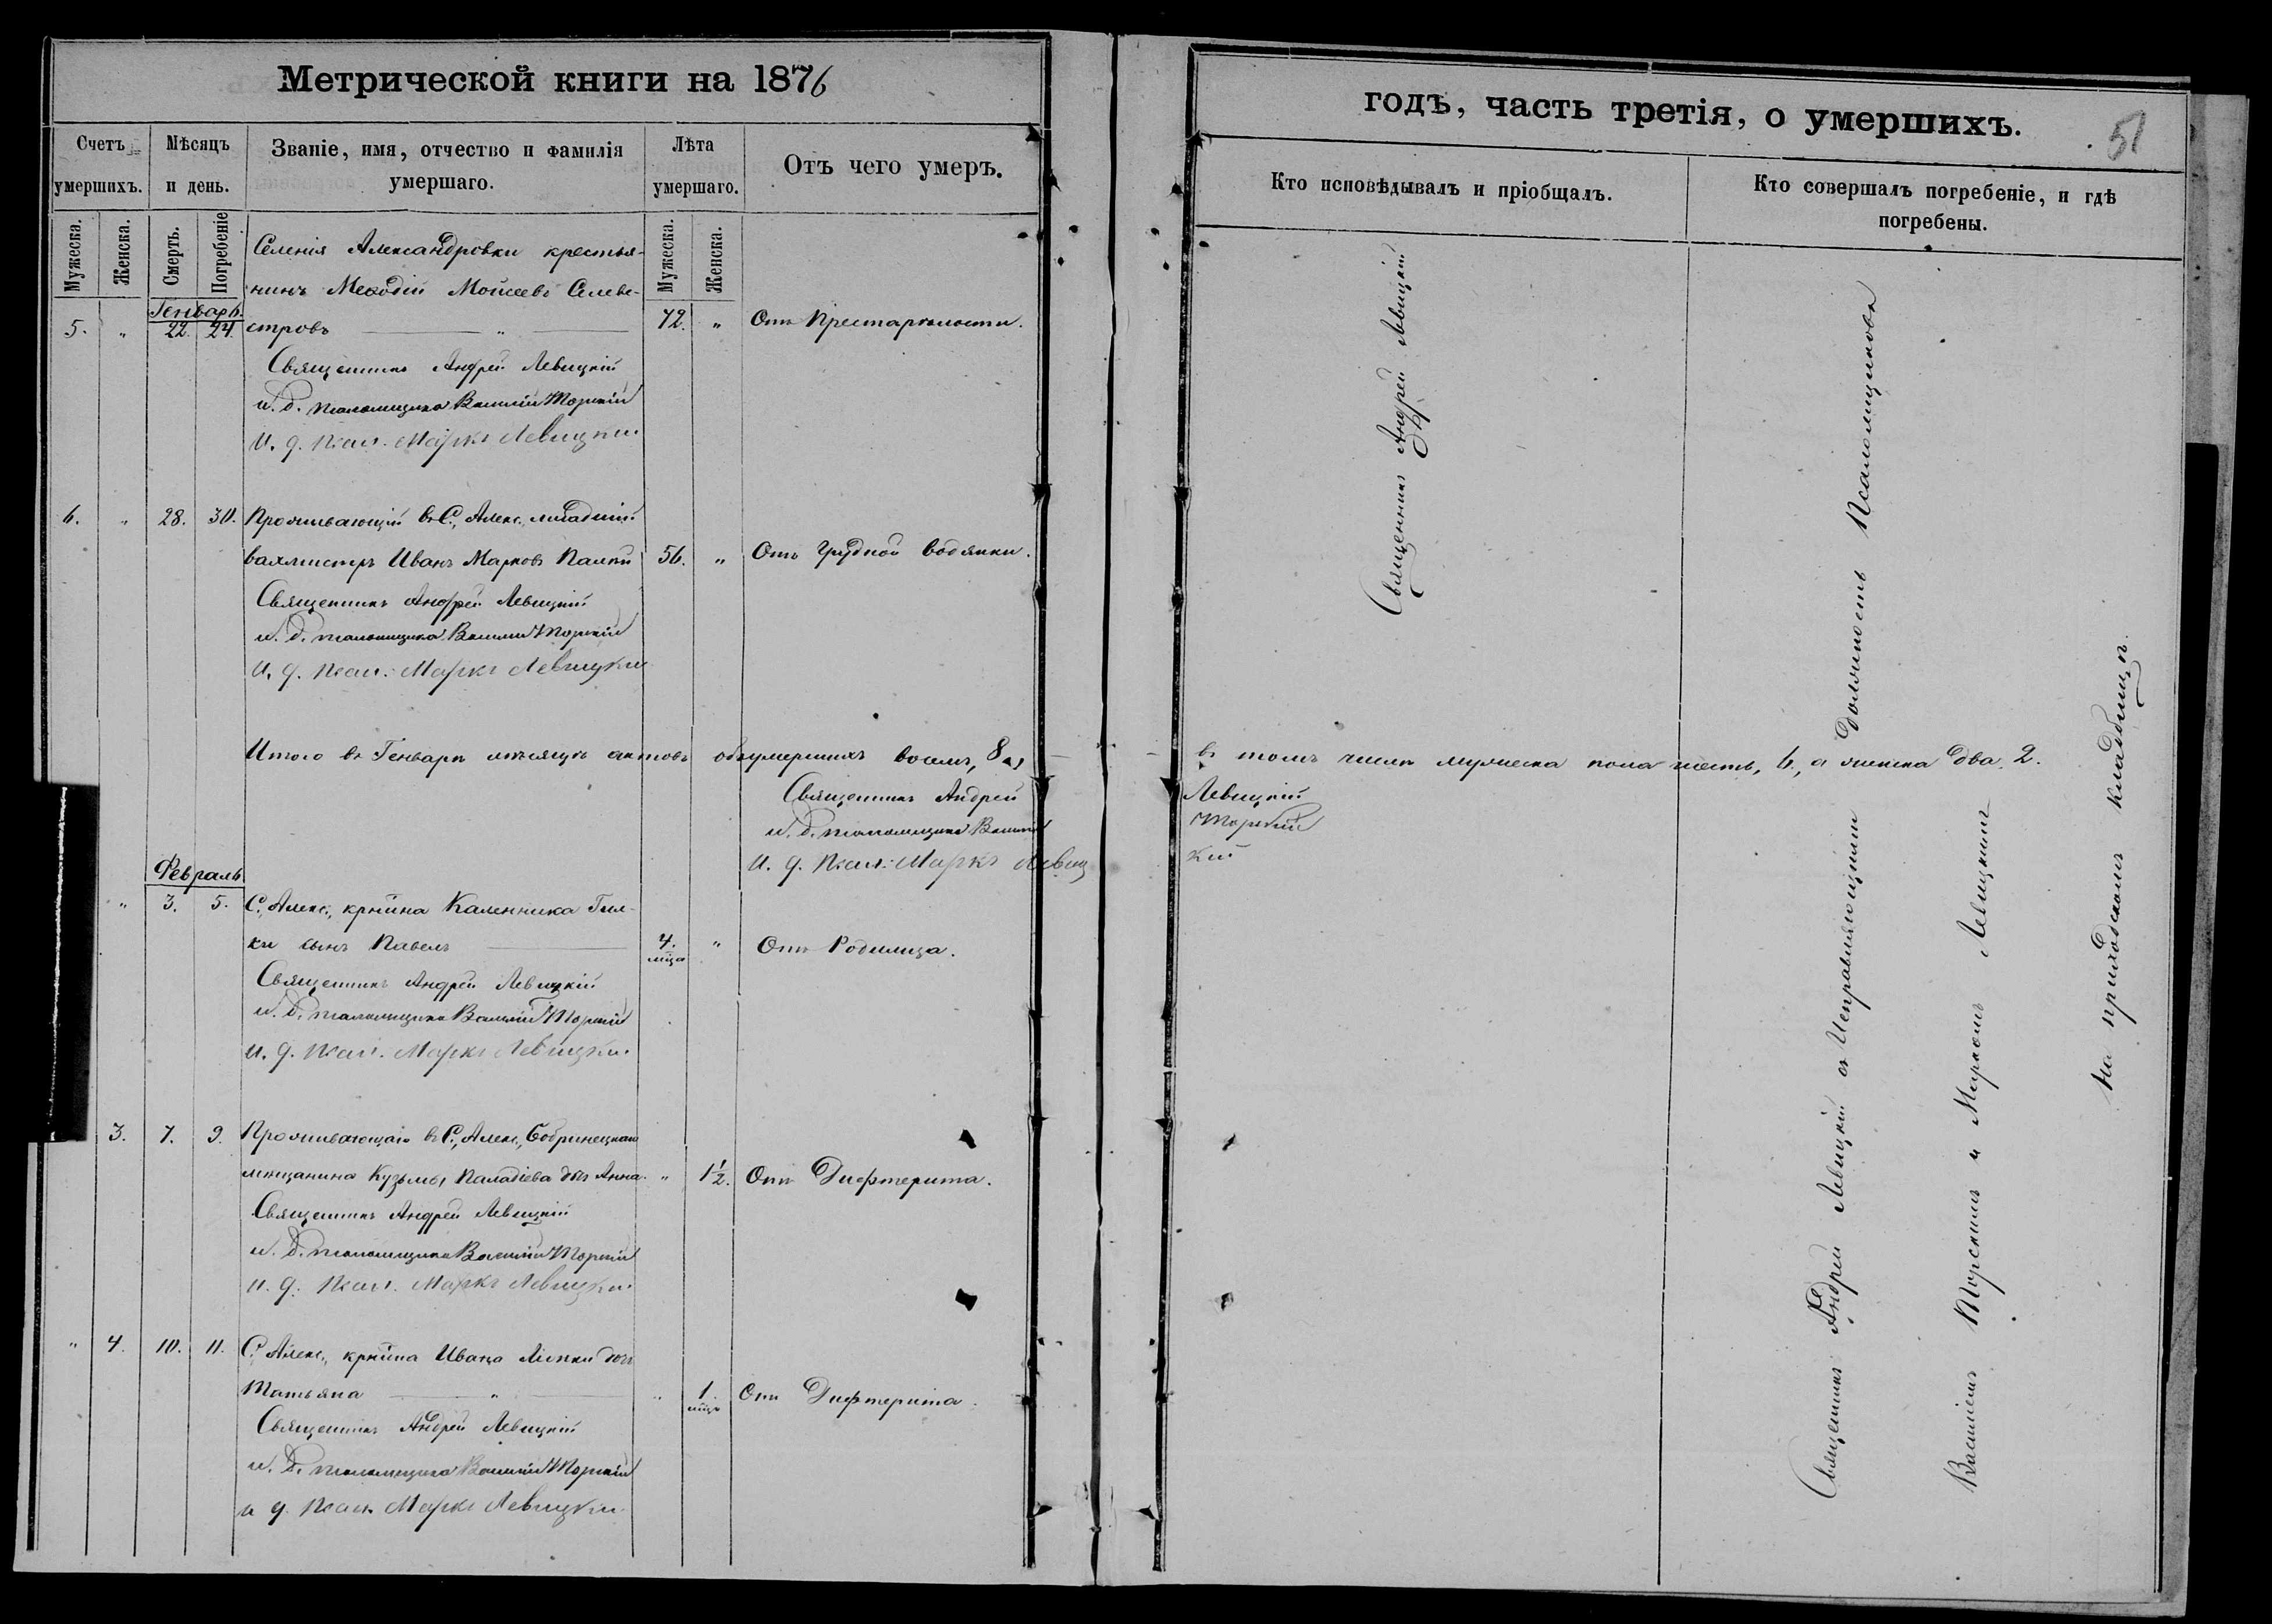 Метрической книги на 1876
Счетъ умершихъ.
Мѣсяцъ и день.
Званіе, имя, отчество и фамилія умершаго.
Лѣта умершаго.
Отъ чего умеръ.
Мужеска.
Женска.
Смерть.
Погребеніе
Мужеска.
Женска.
Селенія Александровки крестья-
нинъ Меѳодій Моисеевъ Селеве-
Генварь.
5. " 22. 24. стровъ " 72. " Отъ Престарѣлости.
Священникъ Андрей Левицкій
и. д. псаломщика Василій Торскій
И. д. Псал. Маркъ Левицкій
6. " 28. 30. Проживающій въ С., Алекс., младшій
вахмистръ Иванъ Марковъ Палій 56. " Отъ грудной водянки.
Священникъ Андрей Левицкій
и. д. псаломщика Василій Торскій
И. д. Псал: Маркъ Левицкій
Итого въ Генварѣ мѣсяцѣ актовъ объ умершихъ восемь, 8,
Священникъ Андрей
и. д. псаломщика Василій
И. д. Псал: Маркъ Левиц
Февраль
" 3. 5. С., Алекс., крѣйна Каленника
сынъ Павелъ 4. мца " Отъ Родимца.
Священникъ Андрей Левицкій
и. д. псаломщика Василій Торскій
И. д. Псал. Маркъ Левицкій
3. 7. 9. Проживающаго въ С., Алекс., Бобринецкаго
мѣщанина Кузьмы Паладіева дчь Анна " 1½. Отъ Дифтерита.
Священникъ Андрей Левицкій
и. д. псаломщика Василій Торскій
И. д. Псал. Маркъ Левицкій
" 4. 10. 11. С. Алекс., крѣйна Ивана Липки дчь
Татьяна " " 1. мца Отъ Дифтерита.
Священникъ Андрей Левицкій
и. д. псаломщика Василій Торскій
и д. Псал. Маркъ Левицкій
годъ, часть третія, о умершихъ.
51
Кто исповѣдывалъ и пріобщалъ.
Кто совершалъ погребеніе, и гдѣ погребены.
Священникъ Андрей Левицкій
въ томъ числѣ мужеска пола шесть, 6, а женска два, 2.
Левицкій
Торскій
кій
Священникъ Андрей Левицкій съ Исправляющими Должность Псаломщиковъ
Василіемъ Торскимъ и Маркомъ Левицкимъ
На приходскомъ кладбищѣ.